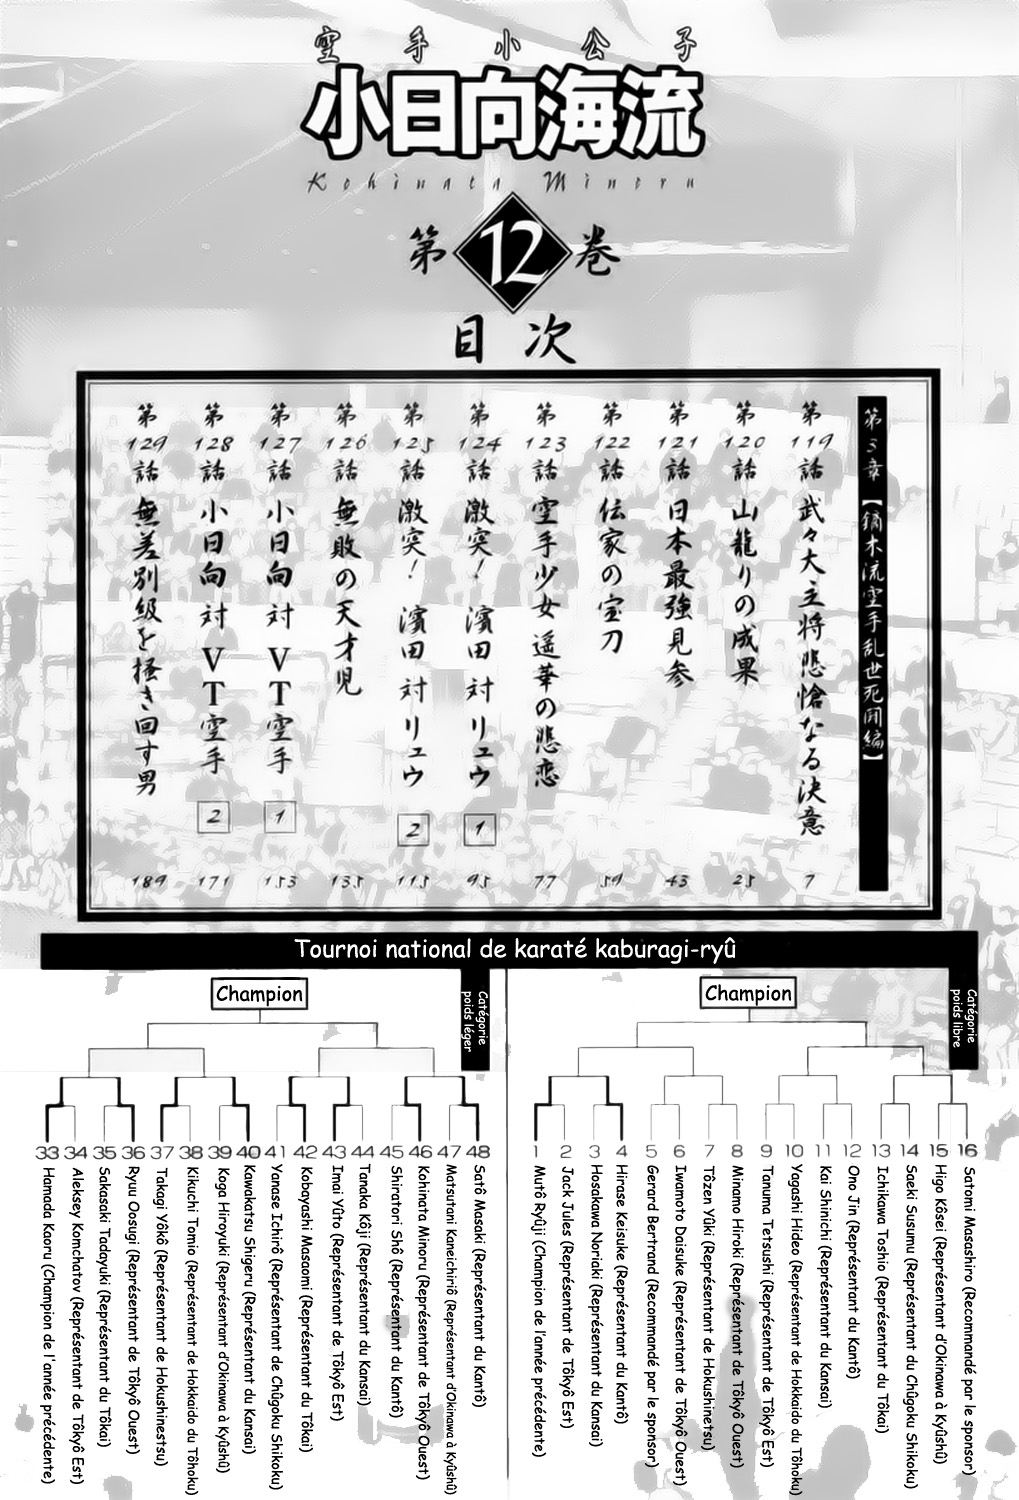 空手小公子
小日向海流
Kohinata Minoru
第12巻
目次
第3章【鏑木流空手乱世死闘編】
第119話 武々大主将悲愴なる決意 7
第120話 山籠りの成果 25
第121話 日本最強見参 43
第122話 伝家の宝刀 59
第123話 空手少女遥華の悲恋 77
第124話 激突! 濱田対リュウ 1 95
第125話 激突! 濱田対リュウ 2 115
第126話 無敗の天才児 135
第127話 小日向対VT空手 1 153
第128話 小日向対VT空手 2 171
第129話 無差別級を掻き回す男 189
Tournoi national de karaté kaburagi-ryû
Catégorie
poids léger
Champion
33 Hamada Kaoru (Champion de l'année précédente)
34 Aleksey Komchatov (Représentant de Tôkyô Est)
35 Sakasaki Tadayuki (Représentant du Tôkai)
36 Ryuu Oosugi (Représentant de Tôkyô Ouest)
37 Takagi Yôkô (Représentant de Hokushinestsu)
38 Kikuchi Tomio (Représentant de Hokkaido du Tôhoku)
39 Kaga Hiroyuki (Représentant d'Okinawa à Kyûshû)
40 Kawakatsu Shigeru (Représentant du Kansai)
41 Yanase Ichirô (Représentant de Chûgoku Shikoku)
42 Kobayashi Masaomi (Représentant du Tôkai)
43 Imai Yûto (Représentant de Tôkyô Est)
44 Tanaka Kôji (Représentant du Kansai)
45 Shiratori Shô (Représentant du Kantô)
46 Kohinata Minoru (Représentant de Tôkyô Ouest)
47 Matsutani Kaneichiriô (Représentant d'Okinawa à Kyûshû)
48 Satô Masaki (Représentant du Kantô)
Catégorie
poids libre
Champion
1 Mutô Ryûji (Champion de l'année précédente)
2 Jack Jules (Représentant de Tôkyô Est)
3 Hosakawa Noriaki (Représentant du Kansai)
4 Hirase Keisuke (Représentant du Kantô)
5 Gerard Bertrand (Recommandé par le sponsor)
6 Iwamoto Daisuke (Représentant de Tôkyô Ouest)
7 Tôzen Yûki (Représentant de Hokushinetsu)
8 Minamo Hiroki (Représentant de Tôkyô Ouest)
9 Tanuma Tetsushi (Représentant de Tôkyô Est)
10 Yagashi Hideo (Représentant de Hokkaido du Tôhoku)
11 Kai Shinichi (Représentant du Kansai)
12 Ono Jin (Représentant du Kantô)
13 Ichikawa Toshio (Représentant du Tôkai)
14 Saeki Susumu (Représentant du Chûgoku Shikoku)
15 Higo Kôsei (Représentant d'Okinawa à Kyûshû)
16 Satomi Masashiro (Recommandé par le sponsor)